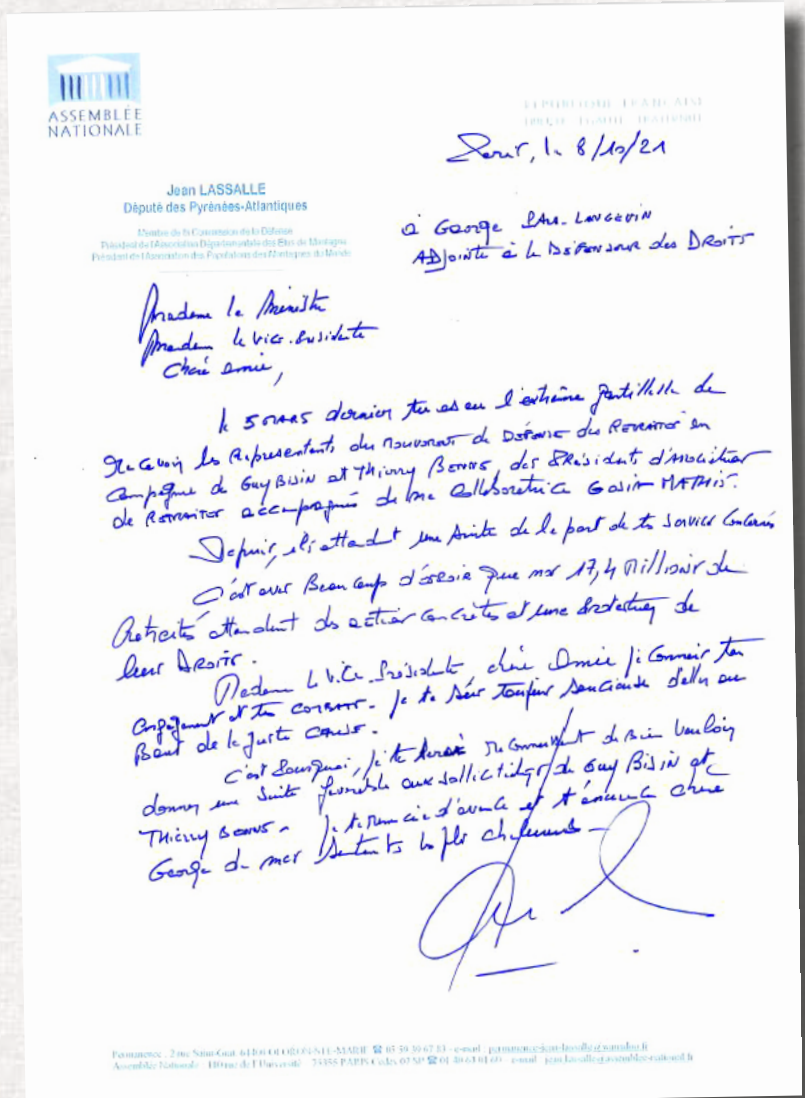 ASSEMBLÉE
NATIONALE
RÉPUBLIQUE FRANÇAISE
LIBERTÉ - ÉGALITÉ - FRATERNITÉ
le 8/10/21
Jean LASSALLE
Député des Pyrénées-Atlantiques
Membre de la Commission de la Défense
Président de l'Association Départementale des Elus de Montagne
Président de l'Association des Populations des Montagnes du Monde
à George PAU-LANGEVIN
ADjointe à la Défenseure des DROITS
Madame la Ministre
Madame la Vice-Présidente
Chère Amie,
le 5 MARS dernier tu as eu l'extrême gentillesse de
recevoir les Représentants du Mouvement de Défense des Retraités en
Compagnie de Guy BISIN et Thierry des Présidents d'Association
de Retraités accompagnés de ma Collaboratrice MATHIS.
Depuis, ils attendent une suite de la part de tes services concernés
C'est avec Beaucoup d'espoir que nos 17,4 Millions de
Retraités attendent des actions concrètes et une protection de
leurs DROITS.
Madame la Vice-Présidente, chère Amie je connais ton
engagement et tes combats. Je te sais toujours soucieuse d'aller au
Bout de la juste CAUSE.
C'est pourquoi, je te serais reconnaissant de bien vouloir
donner une suite favorable aux sollicitations de Guy BISIN et
Thierry Je te remercie d'avance et t'assure chère
George de mes sentiments les plus chaleureux
Permanence : 2 rue 64400 OLORON-STE-MARIE ☎ 05 59 39 67 83 - e-mail : permanence-jean-lassalle@wanadoo.fr
Assemblée Nationale 75355 PARIS Cedex 07 SP ☎ 01 40 63 e-mail jean.lassalle@assemblee-nationale.fr